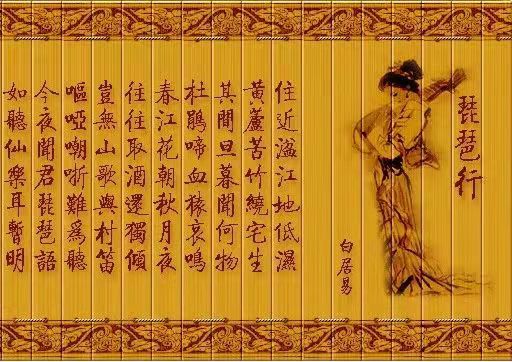 琵琶行
白居易
住近湓江地低濕
黃蘆苦竹繞宅生
其間旦暮聞何物
杜鵑啼血猿哀鳴
春江花朝秋月夜
往往取酒還獨傾
豈無山歌與村笛
嘔啞嘲哳難為聽
今夜聞君琵琶語
如聽仙樂耳暫明